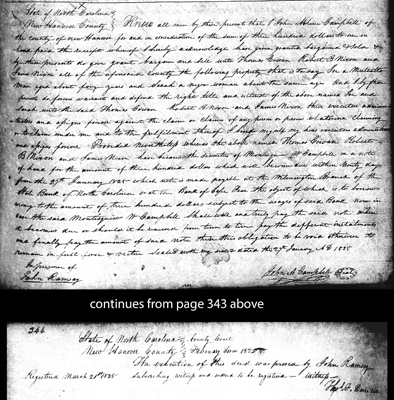 State of North Carolina
New Hanover County Know all men by these presents that I John Allen Campbell of
the county of New Hanover for and in consideration of the sum of three hundred dollars to me in
hand paid the receipt whereof I hereby acknowledge have given granted bargained & sold &
by these presents do give grant bargain and sell unto Thomas Cowan Robert B Nixon and
James Nixon all of the aforesaid County the following property that is to say Jim a Mulatto
man aged about forty years and a negro woman about the same age And I by these
presents do forever warrant and defend the right title and interest of the above named Jim and
unto the said Thomas Cowan Robert B Nixon and James Nixon their executors administrators
and assigns forever against the claim or claims of any person or persons whatsoever claiming
or to claim under me and to the fulfillment thereof I bind myself my heirs executors administrators
and assigns forever Provided Nevertheless whereas the above named Thomas Cowan Robert
B Nixon and James Nixon have become the securities of Montezuma W Campbell on a note
of hand for the amount of three hundred dollars and which becomes due within Ninety days
from the 29th January 1825 which note is made payable at the Wilmington Branch of the
State Bank of North Carolina or at the Bank of Cape Fear the object of which is to borrow
money to the amount of three hundred dollars subject to the usages of said Bank Now in
case the said Montezuma W Campbell shall well and truly pay the said note when
it becomes due or should it be renewed from time to time pay the different instalments
and finally pay the amount of said note then this obligation to be void otherwise to
remain in full force & virtue Sealed with my seal dated the 29th January A.D. 1825
In presence of
John Ramsey John A Campbell Seal
continues from page 343 above
344
State of North Carolina County Court
New Hanover County February Term 1825
The execution of this deed was proven by John Ramsey
Registered March 20th 1825 Subscribing witness and ordered to be registered — Witness —